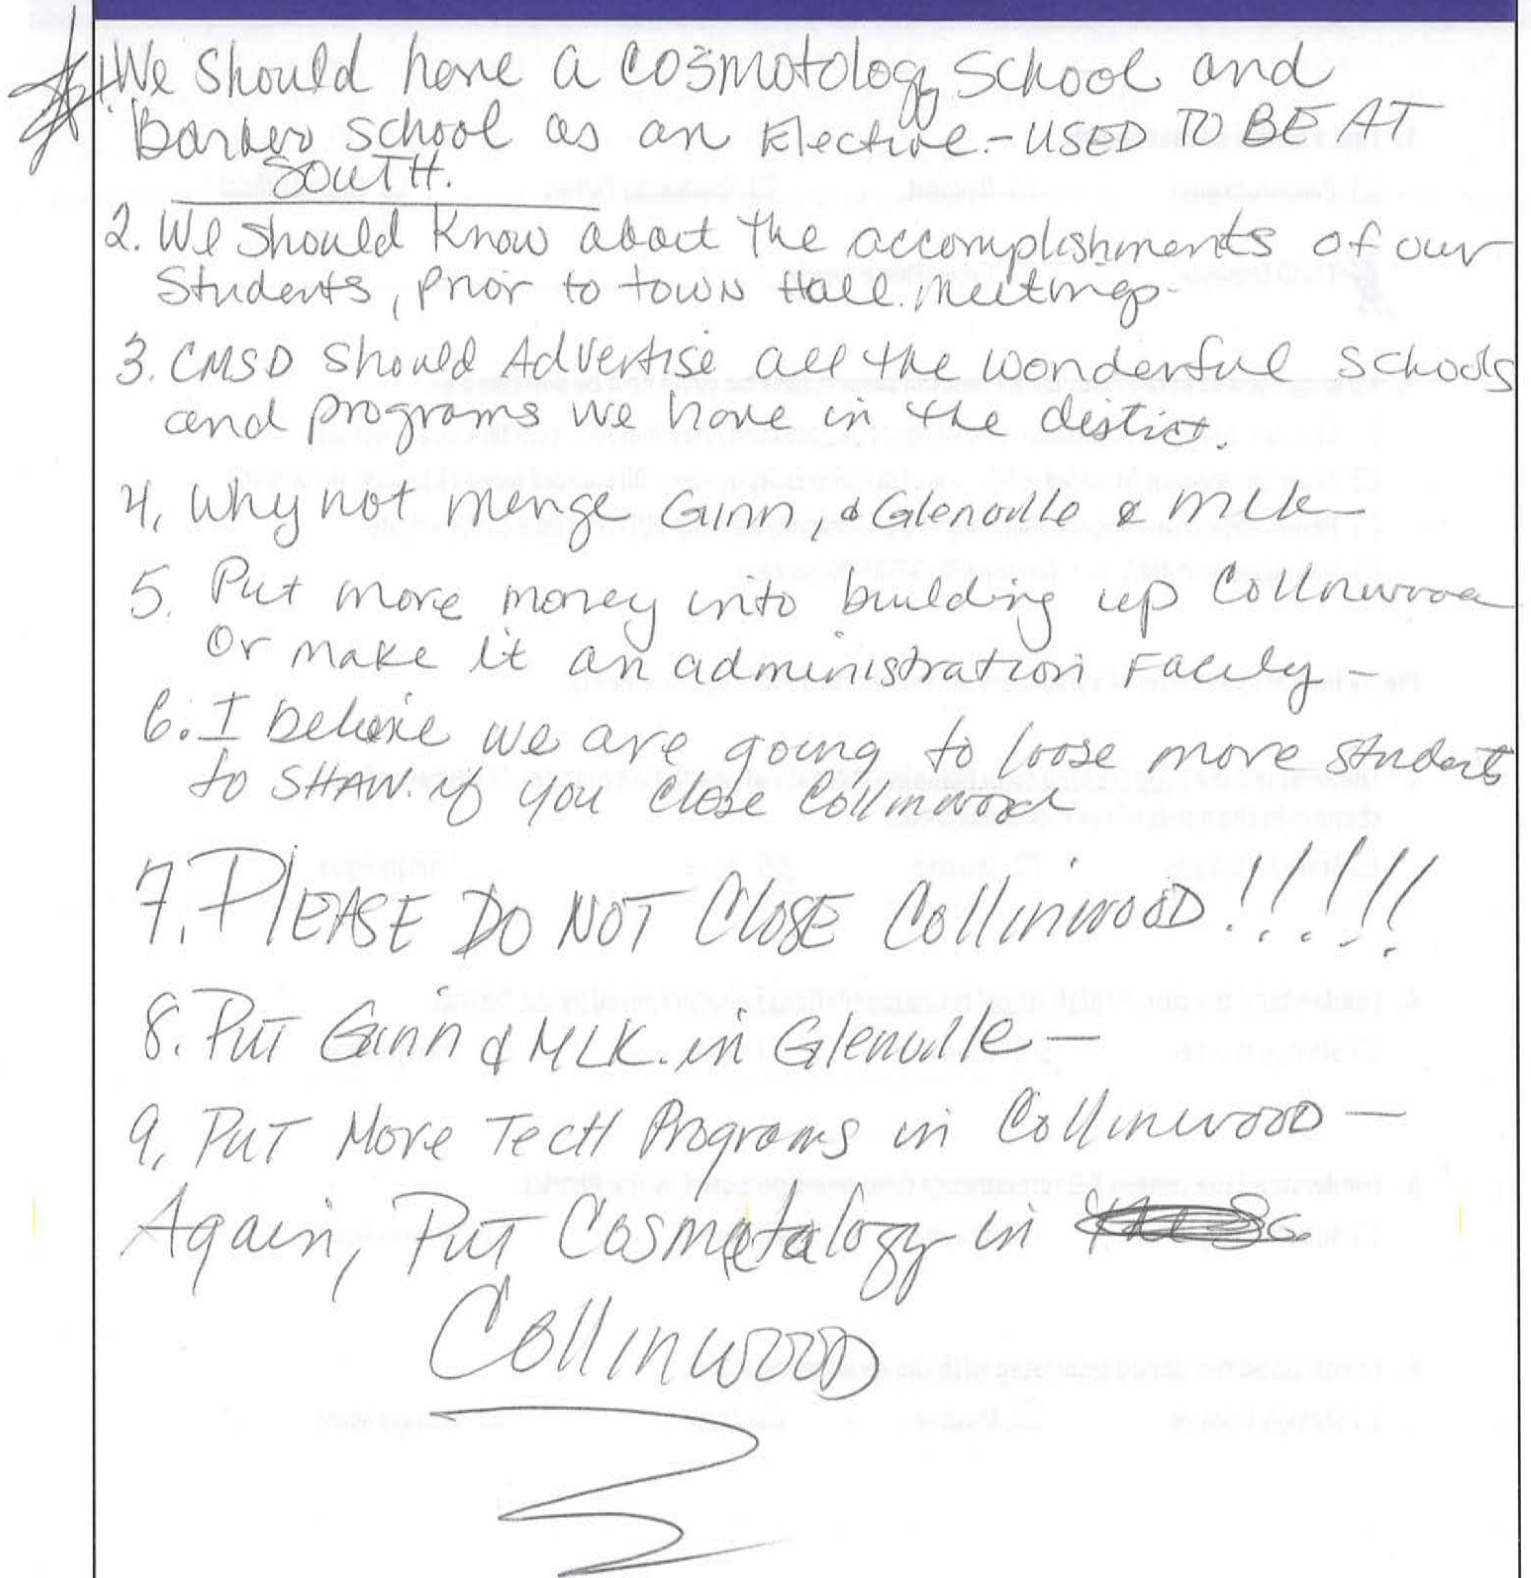 1. We should have a cosmotology School and
Barber school as an Elective - USED TO BE AT
SOUTH.
2. We should know about the accomplishments of our
Students, prior to town Hall meetings.
3. CMSD should Advertise all the wonderful schools
and programs we have in the distict.
4. Why not merge Ginn, & Glenville & MLK -
5. Put more money into building up Collinwood
or make it an administration Facily -
6. I believe we are going to loose more students
to SHAW. if you close Collinwood
7. PLEASE DO NOT CLOSE CollinwooD!!!!!
8. PUT Ginn & MLK. in Glenville -
9. PUT More TecH Programs in CollinwooD -
Again, PUT Cosmetology in
CollinwooD